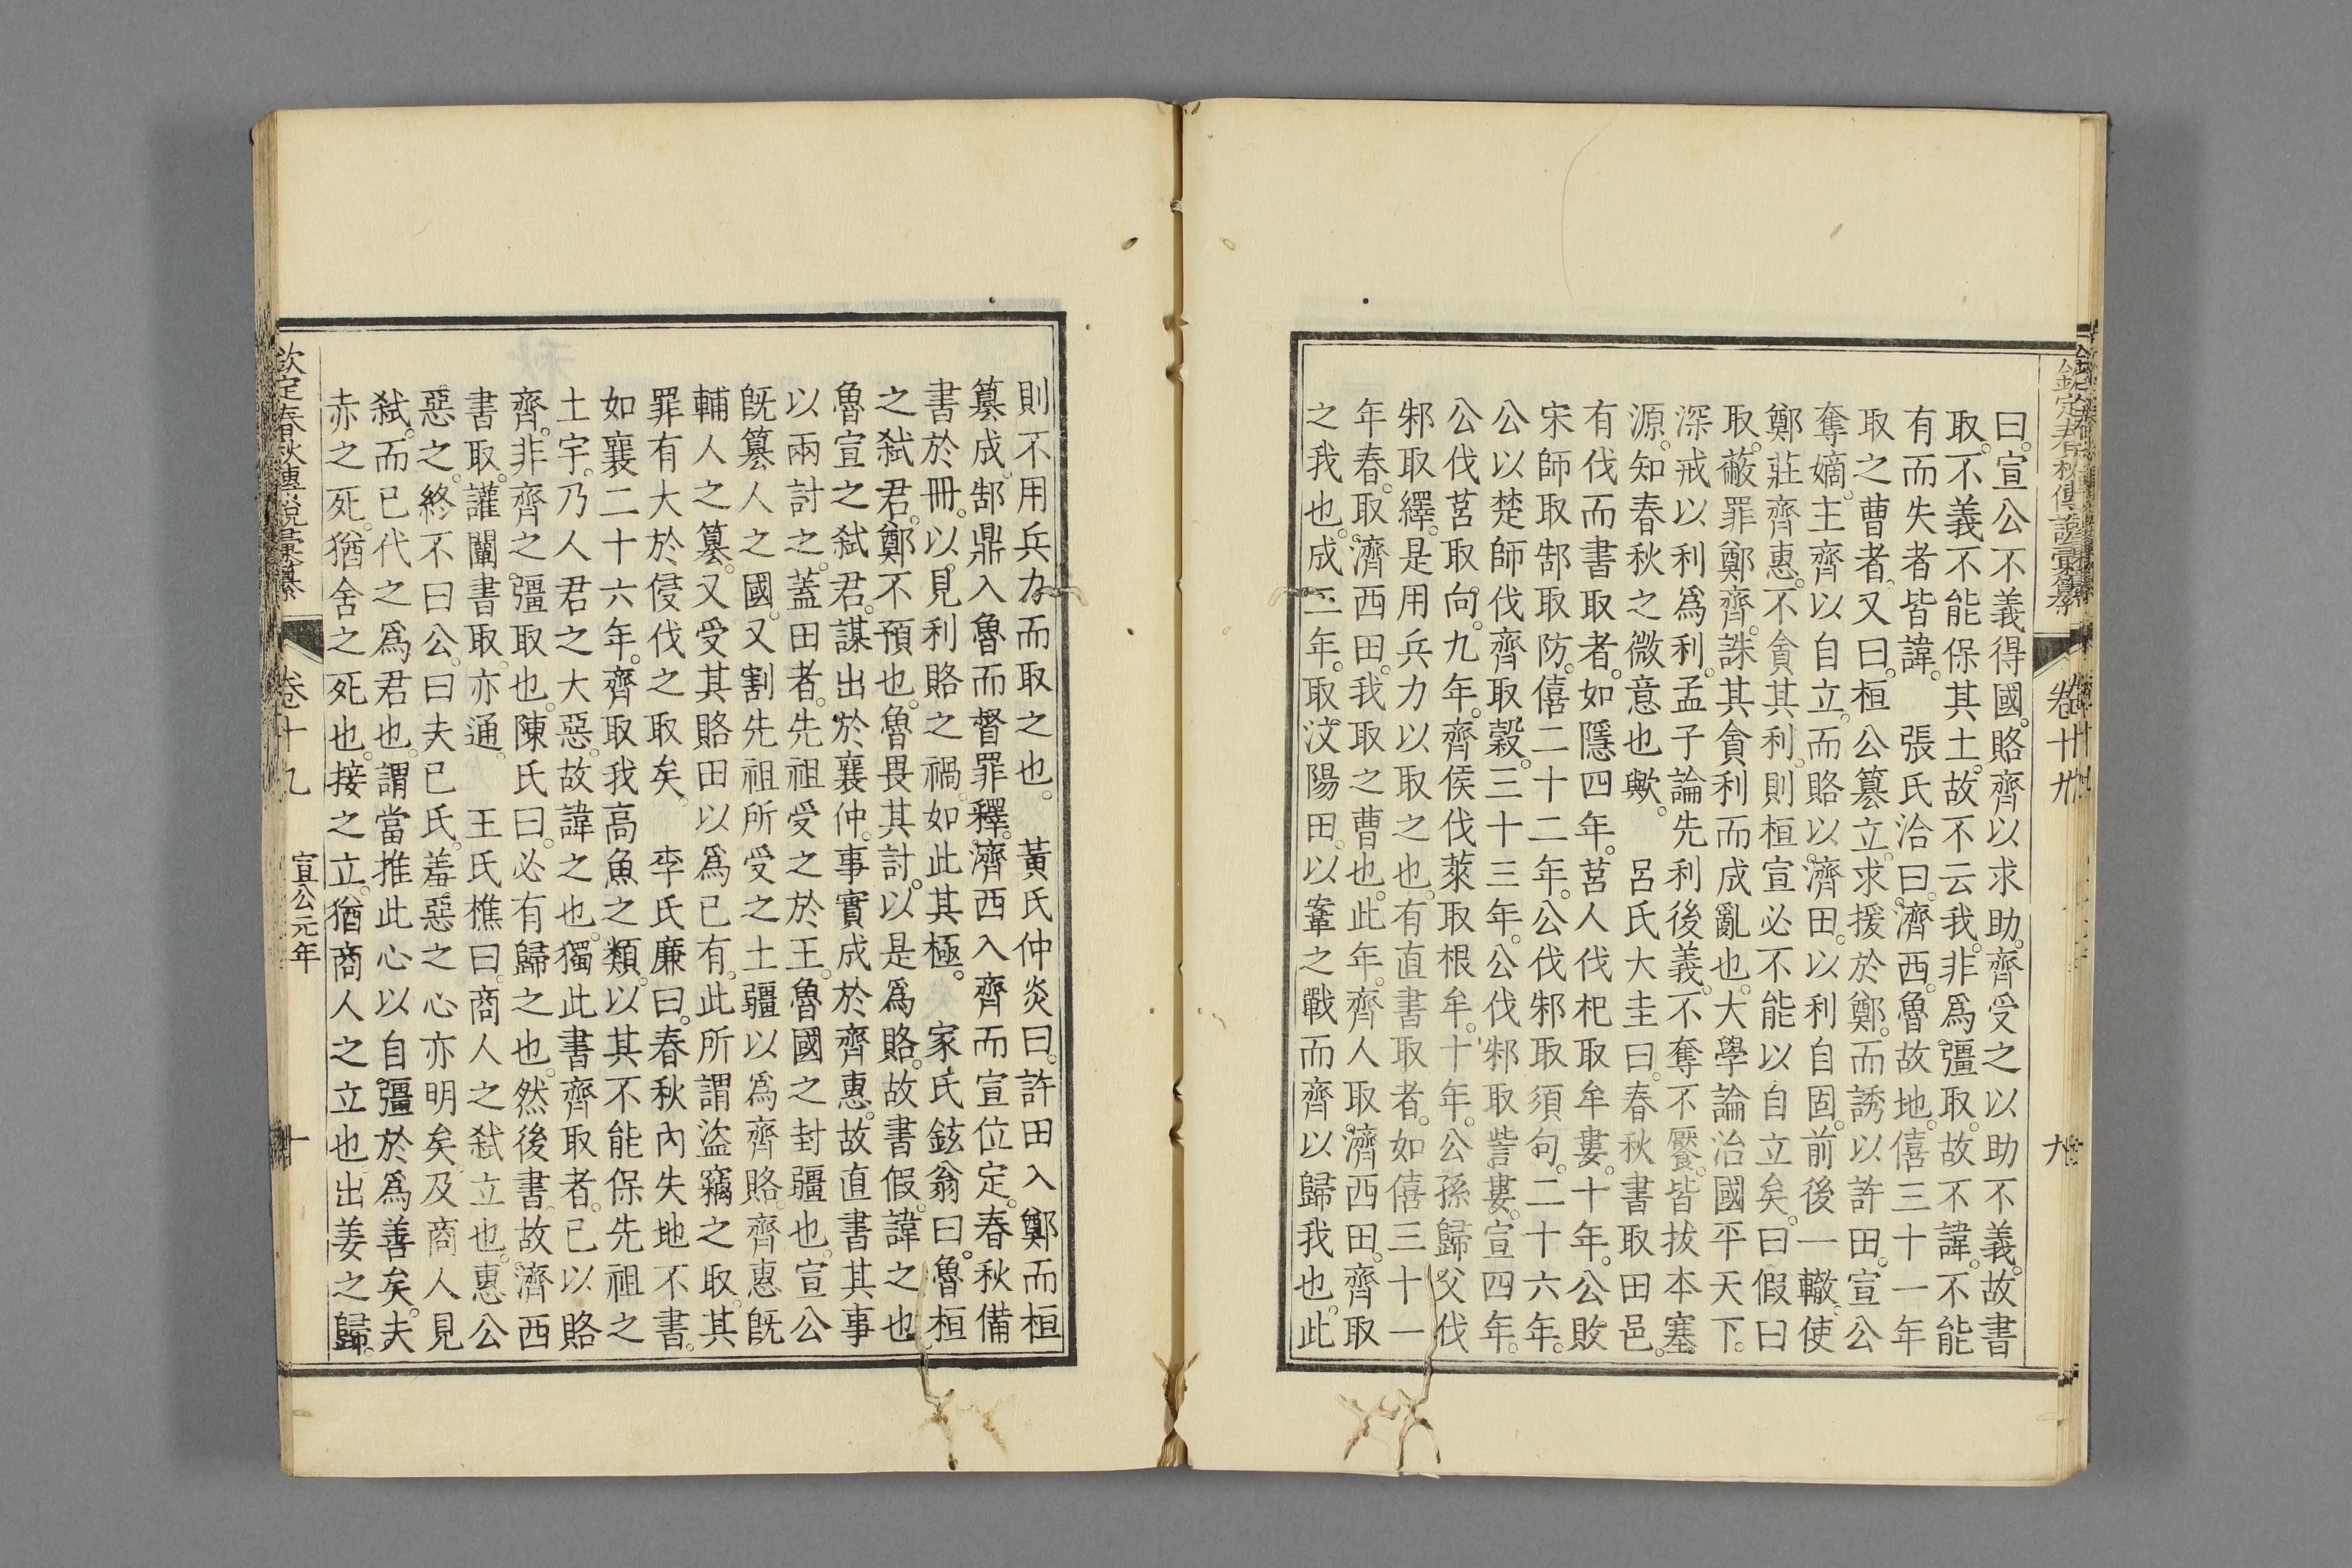 欽定春秋傳說彙纂 卷十九 九
曰。宣公不義得國。賂齊以求助。齊受之以助不義。故書
取。不義不能保其土。故不云我。非爲彊取。故不諱。不能
有而失者皆諱。 張氏洽曰。濟西。魯故地。僖三十一年
取之曹者。又曰。桓公篡立。求援於鄭。而誘以許田。宣公
奪嫡。主齊以自立。而賂以濟田。以利自固。前後一轍。使
鄭莊齊惠。不貪其利。則桓宣必不能以自立矣。曰假曰
取。蔽罪鄭齊。誅其貪利而成亂也。大學論治國平天下。
深戒以利爲利。孟子論先利後義。不奪不饜。皆拔本塞
源。知春秋之微意也歟。 呂氏大圭曰。春秋書取田邑。
有伐而書取者。如隱四年。莒人伐杞取牟婁。十年。公敗
宋師取郜取防。僖二十二年。公伐邾取須句。二十六年。
公以楚師伐齊取穀。三十三年。公伐邾取訾婁。宣四年。
公伐莒取向。九年。齊侯伐萊取根牟。十年。公孫歸父伐
邾取繹。是用兵力以取之也。有直書取者。如僖三十一
年春。取濟西田。我取之曹也。此年。齊人取濟西田。齊取
之我也。成二年。取汶陽田。以鞌之戰而齊以歸我也。此
則不用兵力而取之也。 黃氏仲炎曰。許田入鄭而桓
篡成。郜鼎入魯而督罪釋。濟西入齊而宣位定。春秋備
書於冊。以見利賂之禍。如此其極。 家氏鉉翁曰。魯桓
之弒君。鄭不預也。魯畏其討。以是爲賂。故書假。諱之也。
魯宣之弒君。謀出於襄仲。事實成於齊惠。故直書其事
以兩討之。蓋田者。先祖受之於王。魯國之封疆也。宣公
旣篡人之國。又割先祖所受之土疆以爲齊賂。齊惠旣
輔人之篡。又受其賂田以爲已有。此所謂盜竊之取。其
罪有大於侵伐之取矣。 李氏廉曰。春秋內失地不書。
如襄二十六年。齊取我高魚之類。以其不能保先祖之
土宇。乃人君之大惡。故諱之也。獨此書齊取者。已以賂
齊。非齊之彊取也。陳氏曰。必有歸之也。然後書。故濟西
書取。讙闡書取。亦通。 王氏樵曰。商人之弒立也。惠公
惡之。終不曰公。曰夫已氏。羞惡之心亦明矣。及商人見
弒。而已代之爲君也。謂當推此心以自彊於爲善矣。夫
赤之死。猶舍之死也。接之立。猶商人之立也。出姜之歸。
欽定春秋傳說彙纂 卷十九 宣公元年 十